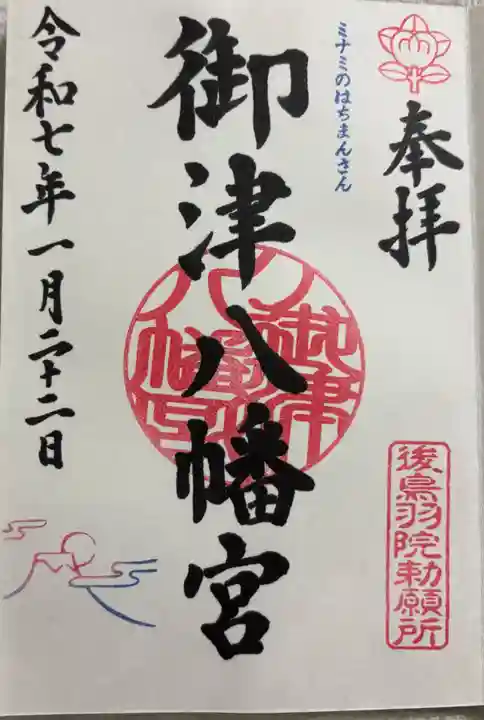 奉拝
後鳥羽院勅願所
ミナミのはちまんさん
御津八幡宮
御津八幡宮
令和七年一月二十二日